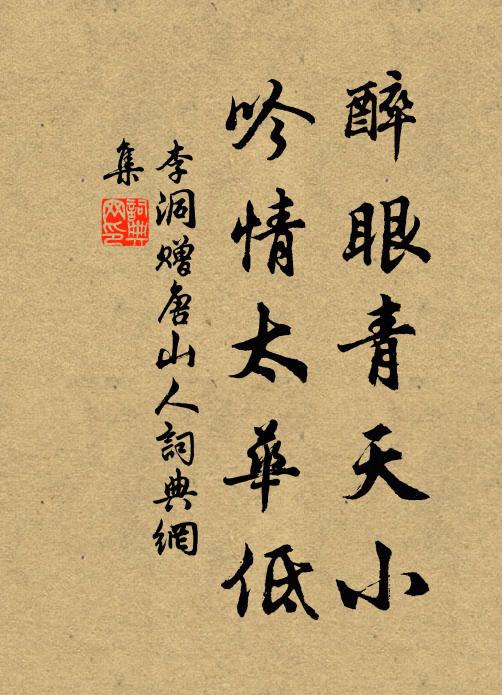 醉眼青天小
吟情太華低
李洞贈唐山人詞典網
集
詞典
网印